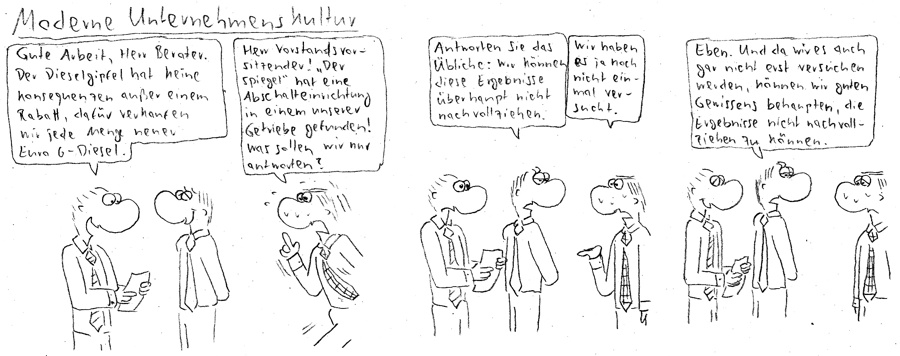 Moderne Unternehmenskultur
Gute Arbeit, Herr Berater.
Der Dieselgipfel hat keine
Konsequenzen außer einem
Rabatt, dafür verkaufen
wir jede Menge neuer
Euro 6-Diesel.
Herr Vorstandsvor-
sitzender! „Der
Spiegel“ hat eine
Abschalteinrichtung
in einem unserer
Getriebe gefunden!
Was sollen wir nur
antworten?
Antworten Sie das
Übliche: Wir können
diese Ergebnisse
überhaupt nicht
nachvollziehen.
Wir haben
es ja noch
nicht ein-
mal ver-
sucht.
Eben. Und da wir es auch
gar nicht erst versuchen
werden, können wir guten
Gewissens behaupten, die
Ergebnisse nicht nachvoll-
ziehen zu können.